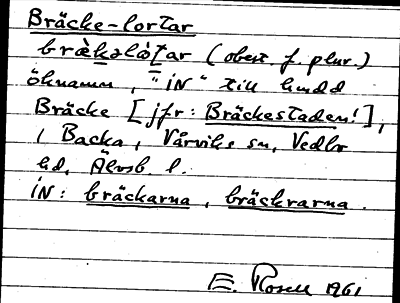 Bräcke-lortar
brækəlòṭar (obest. f. plur.)
öknamn, "iN" till hmdd
Bräcke [jfr: Bräckestaden!],
i Backa, Vårviks sn, Vedbo
hd, Älvsb l.
iN: bräckarna, bräckrarna.
E. Rosell 1961